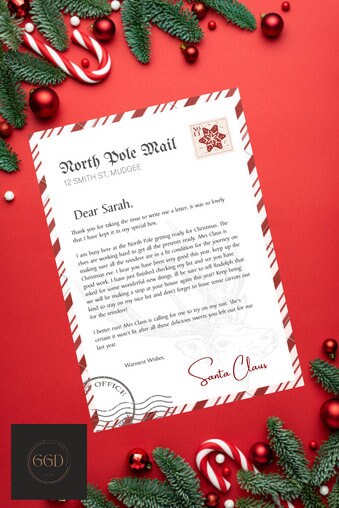 North Pole Mail
12 SMITH ST, MUDGEE
Dear Sarah,
Thank you for taking the time to write me a letter, it was so lovely
that I have kept it in my special box.
I am busy here at the North Pole getting ready for Christmas. The
elves are working hard to get all the presents ready. Mrs Claus is
making sure all the reindeer are in a fit condition for the journey on
Christmas eve. I hear you have been very good this year, keep up the
good work. I have just finished checking my list and see you have
asked for some wonderful new things. Ill be sure to tell Rudolph that
we will be making a stop at your house again this year! Keep being
kind to stay on my nice list and don't forget to leave some carrots out
for the reindeer!
I better run! Mrs Claus is calling for me to try on my suit. She's
certain it won't fit after all those delicious sweets you left out for me
last year.
Warmest Wishes,
Santa Claus
OFFICE
GGD